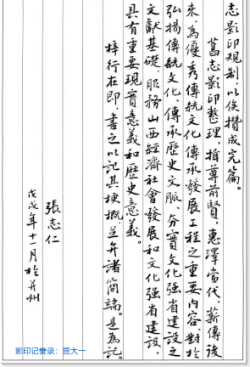 志影印規制以俟攢成完篇。
舊志影印整理,揖尊前賢,惠澤當代,薪傳後
來,為優秀傳統文化傳承發展工程之重要內容,對於
弘揚傳統文化、傳承歷史文脈、夯實文化强省建設之
文獻基礎,服務山西經濟社會發展和文化强省建設,
具有重要現實意義和歷史意義。
梓行在即,書之以記其梗概並弁諸簡端。是為記。
張志仁
戊戌年十一月於并州
影印记誊录:贾大一